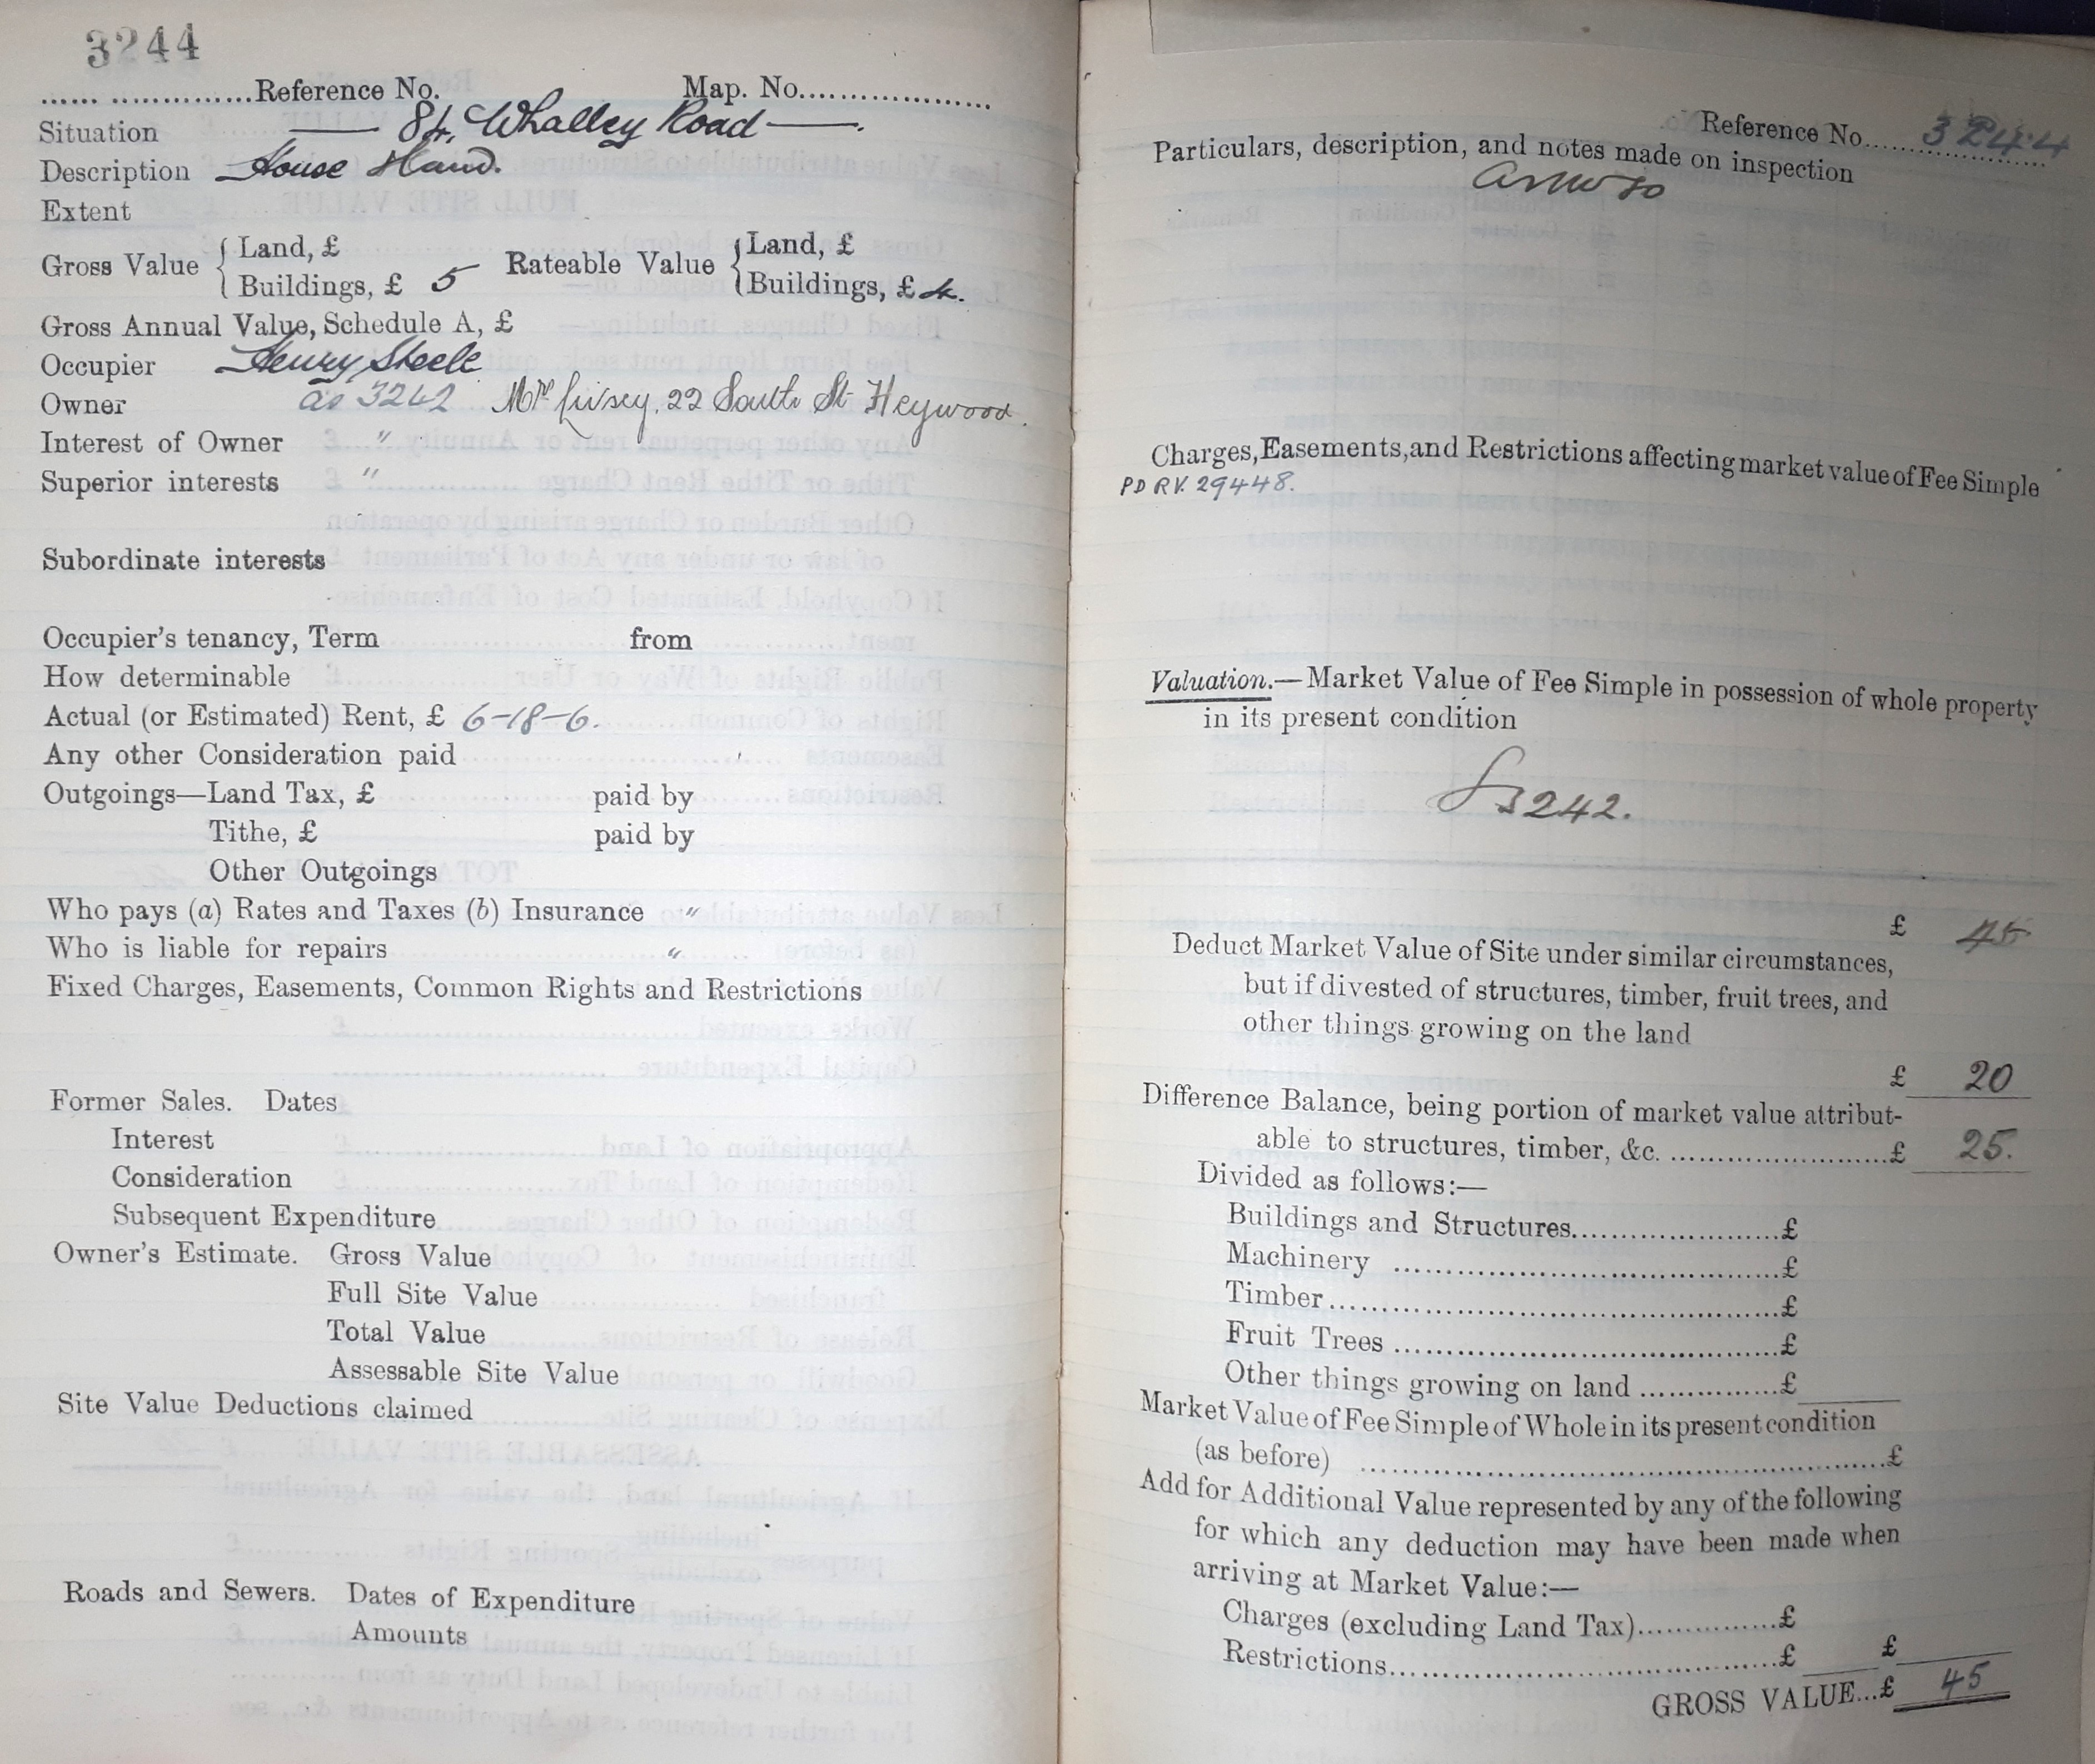 3244
Reference No. Map. No.
Situation 84, Whalley Road
Description House
Extent
Gross Value { Land, £ Rateable Value { Land, £
Buildings, £ 5 Buildings, £ 4.
Gross Annual Value, Schedule A, £
Occupier Henry Steele
Owner as 3242 Mrs Livsey, 22 South St Heywood.
Interest of Owner "
Superior interests "
Subordinate interests
Occupier's tenancy, Term from
How determinable
Actual (or Estimated) Rent, £ 6-18-6.
Any other Consideration paid
Outgoings—Land Tax, £ paid by
Tithe, £ paid by
Other Outgoings
Who pays (a) Rates and Taxes (b) Insurance "
Who is liable for repairs "
Fixed Charges, Easements, Common Rights and Restrictions
Former Sales. Dates
Interest
Consideration
Subsequent Expenditure
Owner's Estimate. Gross Value
Full Site Value
Total Value
Assessable Site Value
Site Value Deductions claimed
Roads and Sewers. Dates of Expenditure
Amounts
Reference No. 3244
Particulars, description, and notes made on inspection
Charges, Easements, and Restrictions affecting market value of Fee Simple
PD RV. 29448.
Valuation.—Market Value of Fee Simple in possession of whole property
in its present condition
3242.
£ 45
Deduct Market Value of Site under similar circumstances,
but if divested of structures, timber, fruit trees, and
other things growing on the land
£ 20
Difference Balance, being portion of market value attribut-
able to structures, timber, &c. £ 25.
Divided as follows:—
Buildings and Structures £
Machinery £
Timber £
Fruit Trees £
Other things growing on land £
Market Value of Fee Simple of Whole in its present condition
(as before) £
Add for Additional Value represented by any of the following
for which any deduction may have been made when
arriving at Market Value:—
Charges (excluding Land Tax) £
Restrictions £ £
GROSS VALUE...£ 45